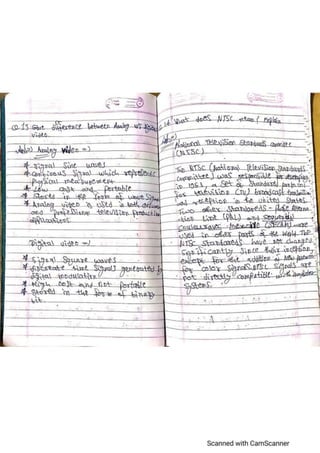 Q 1) Give difference between Analog v/s Digital
video.
Ans) Analog Video =>
* Signal Sine waves
* Continuous Signal which represents
physical measurement
* Low cost and portable
* Stores in the form of wave signal
* Analog video is used in both
and professional television production
applications
Digital video =>
* Signal Square waves
* time Signal generated by
digital modulation
* High cost and not portable
* Stored in the form of binary
bit
What does NTSC stand? explain
National Television Standards committee
(NTSC)
The NTSC (National Television Standards
committee) was responsible
in 1953, a Set of Standards
for television (TV) broadcast
and reception in the United States.
Two other Standards - Phase
Line (PAL) and Sequential
were
used in other parts of the world. The
NTSC Standards have not changed
Significantly Since their inception,
except for the addition of New
for color signals. signals are
not directly compatible with computer
Systems.
Scanned with CamScanner